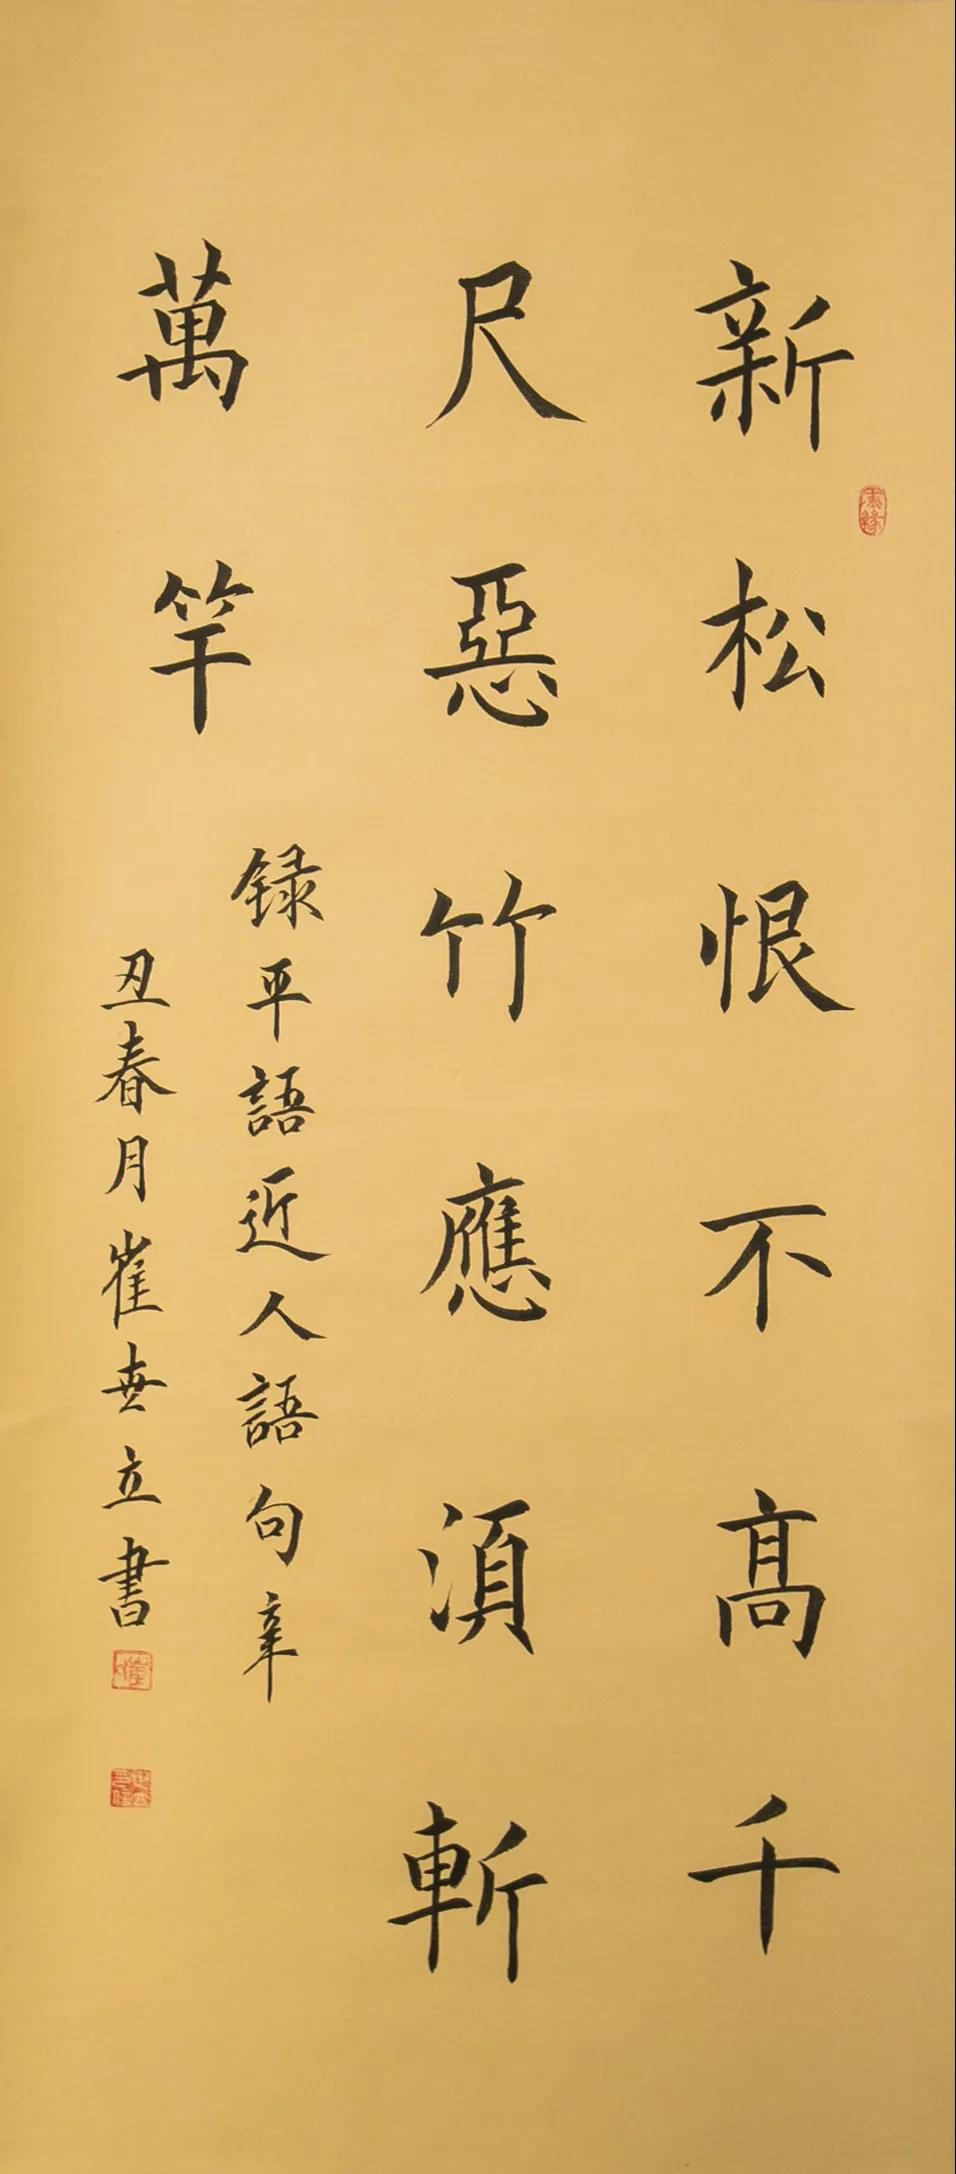 新松恨不髙千
尺惡竹應湏斬
萬竿
録平語近人語句辛
丑春月崔世立書